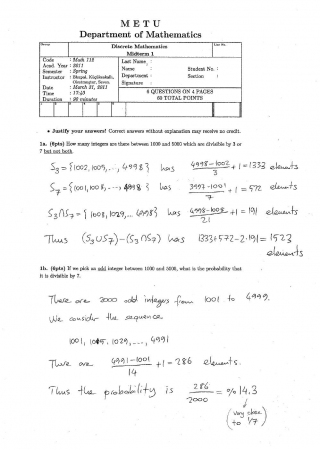 M E T U
Department of Mathematics
Group
Discrete Mathematics
Midterm 1
List No.
Code : Math 112
Acad. Year : 2011
Semester : Spring
Instructor : Bhupal, Küçüksakallı,
Date : March 31, 2011
Time : 17:40
Duration : 90 minutes
Last Name :
Name : Student No. :
Department : Section :
Signature :
6 QUESTIONS ON 4 PAGES
60 TOTAL POINTS
• Justify your answers! Correct answers without explanation may receive no credit.
1a. (6pts) How many integers are there between 1000 and 5000 which are divisible by 3 or
7 but not both.
S₃ = {1002, 1005, ..., 4998} has (4998-1002)/3 + 1 = 1333 elements
S₇ = {1001, 1008, ..., 4998} has +1 = 572 elements
S₃∩S₇ = {1008, 1029, ... 4998} has (4998-1008)/21 + 1 = 191 elements
Thus (S₃∪S₇)-(S₃∩S₇) has 1333+572-2·191 = 1523
elements
1b. (6pts) If we pick an odd integer between 1000 and 5000, what is the probability that
it is divisible by 7.
There are 2000 odd integers from 1001 to 4999.
We consider the sequence
1001, 1015, 1029, ..., 4991
There are (4991-1001)/14 + 1 = 286 elements.
Thus the probability is 286/2000 = %14.3
(very close
to 1/7)